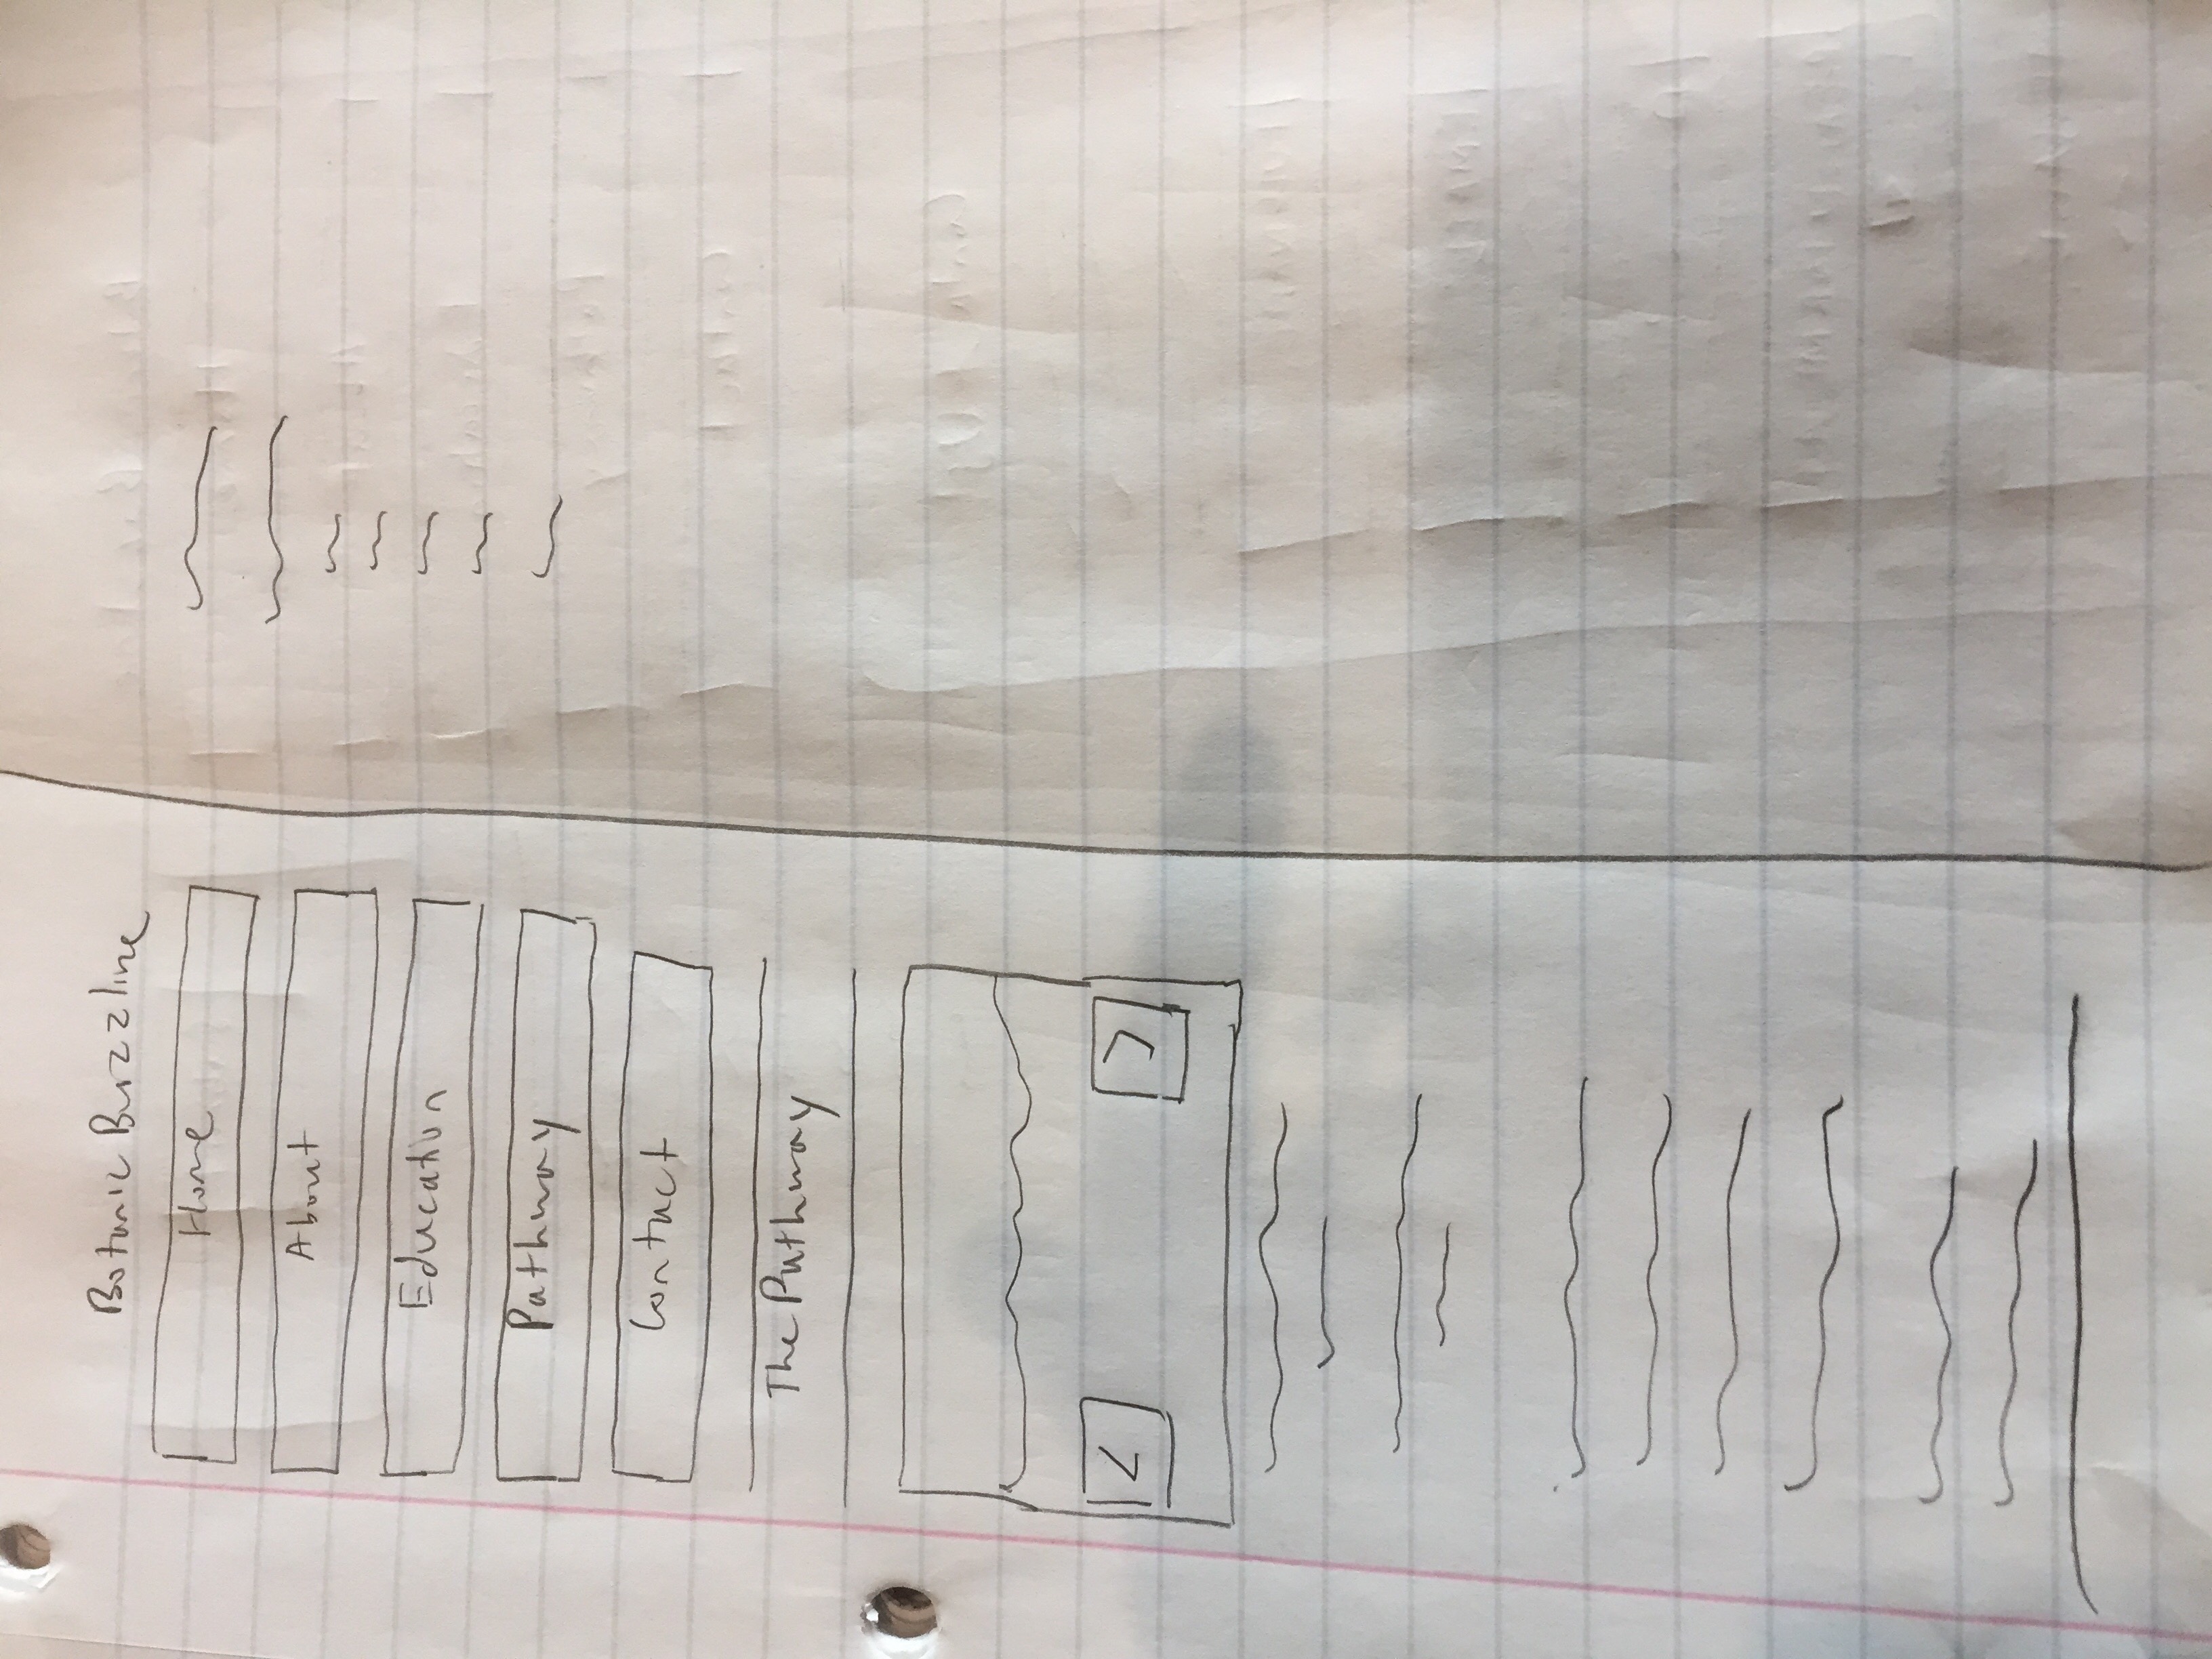 Botanic Buzzline
Home
About
Education
Pathway
Contact
The Pathway
<
>